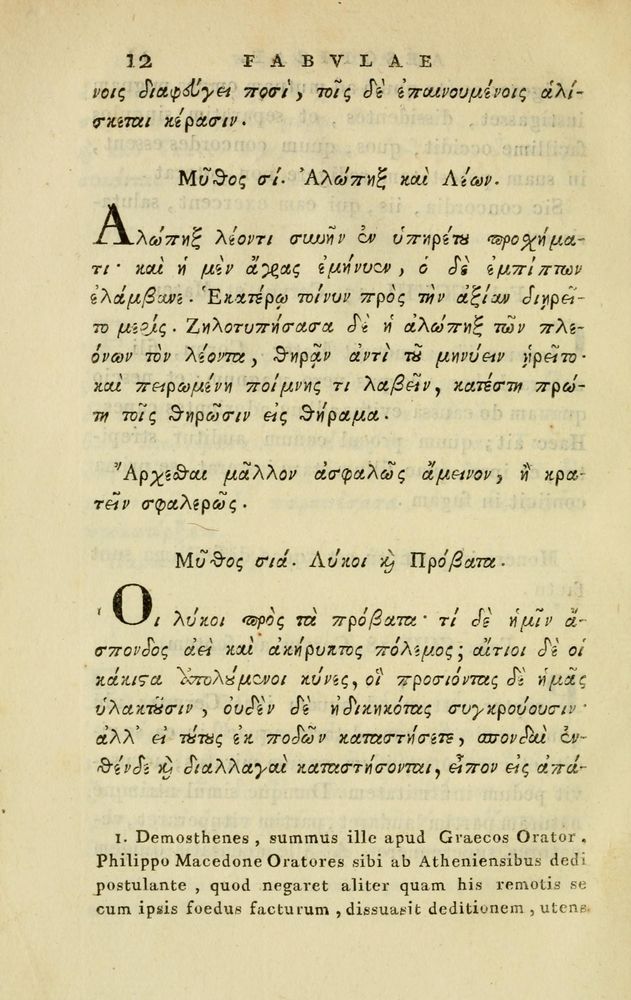 12 FABVLAE
νοις διαφεύγει ποσὶ, τοῖς δὲ ἐπαινουμένοις ἁλί-
σκεται κέρασιν.
Μῦθος σί. Ἀλώπηξ καὶ Λέων.
Ἀλώπηξ λέοντι συνῆν ἐν ὑπηρέτου προσχήμα-
τι· καὶ ἡ μὲν ἄγρας ἐμήνυεν, ὁ δὲ ἐμπίπτων
ἐλάμβανε. Ἑκατέρῳ τοίνυν πρὸς τὴν ἀξίαν διῃρεῖ-
το μερίς. Ζηλοτυπήσασα δὲ ἡ ἀλώπηξ τῶν πλε-
όνων τὸν λέοντα, θηρᾶν ἀντὶ τοῦ μηνύειν ᾑρεῖτο·
καὶ πειρωμένη ποίμνης τι λαβεῖν, κατέστη πρώ-
τη τοῖς θηρῶσιν εἰς θήραμα.
Ἄρχεσθαι μᾶλλον ἀσφαλῶς ἄμεινον, ἢ κρα-
τεῖν σφαλερῶς.
Μῦθος σιά. Λύκοι καὶ Πρόβατα.
Οἱ λύκοι πρὸς τὰ πρόβατα· τί δὲ ἡμῖν ἄ-
σπονδος ἀεὶ καὶ ἀκήρυκτος πόλεμος; αἴτιοι δὲ οἱ
κάκιστα ἀπολούμενοι κύνες, οἳ προσιόντας δὲ ἡμᾶς
ὑλακτοῦσιν, οὐδὲν δὲ ἠδικηκότας συγκρούουσιν·
ἀλλ' εἰ τούτους ἐκ ποδῶν καταστήσετε, σπονδαὶ ἐν-
θένδε καὶ διαλλαγαὶ καταστήσονται, εἶπον εἰς ἁπά-
1. Demosthenes, summus ille apud Graecos Orator,
Philippo Macedone Oratores sibi ab Atheniensibus dedi
postulante, quod negaret aliter quam his remotis se
cum ipsis foedus facturum, dissuasit deditionem, utens